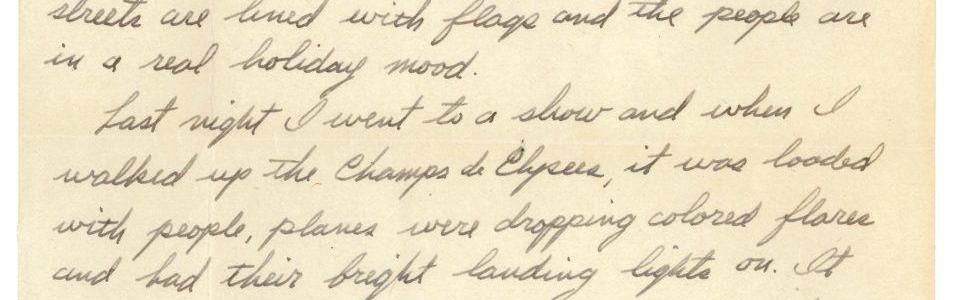 streets are lined with flags and the people are
in a real holiday mood.
Last night I went to a show and when I
walked up the Champs de Elysees, it was loaded
with people, planes were dropping colored flares
and had their bright landing lights on. It